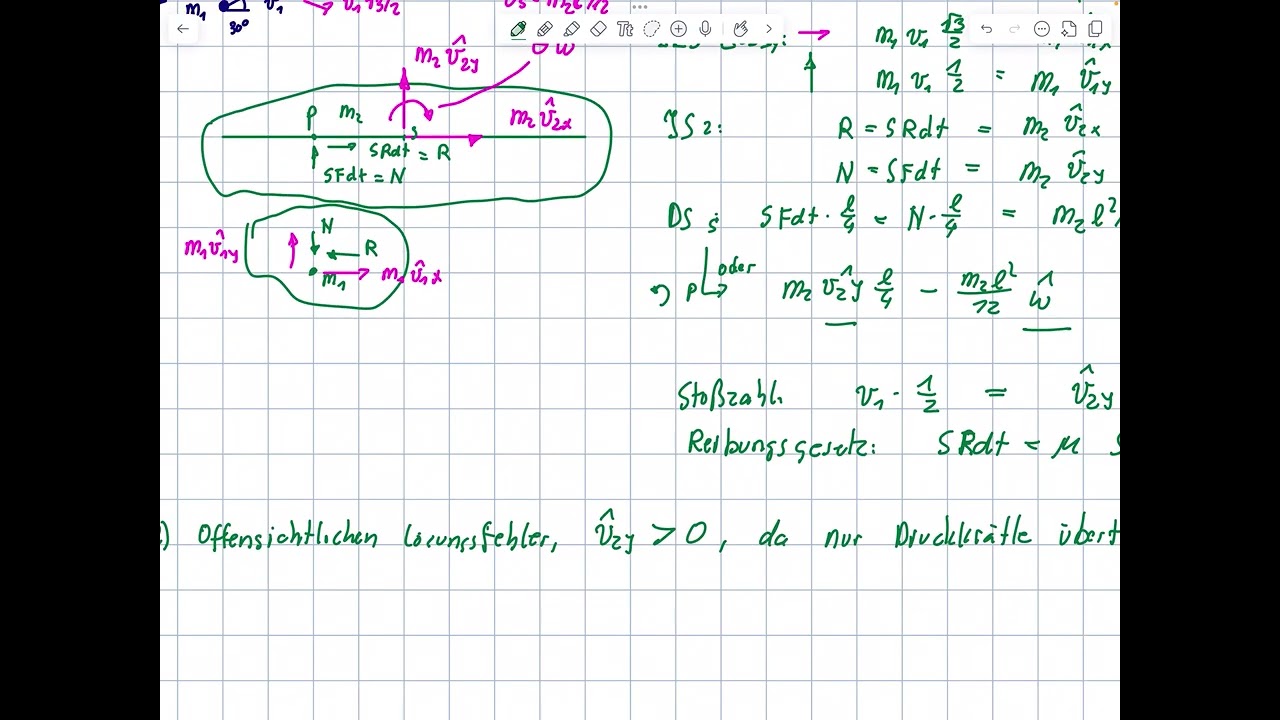 m₁ v₁
30°
m₂ v̂₂y
ω
P m₂ S m₂ v̂₂x
SRdt = R
SFdt = N
m₁v̂₁y N R
m₁ m₁ v̂₁x
m₁ v₁ √3/2
m₁ v₁ 1/2 = m₁ v̂₁y
JS2: R = SRdt = m₂ v̂₂x
N = SFdt = m₂ v̂₂y
DS S: SFdt · l/4 = N · l/4 = m₂ l²
oder
P m₂ v̂₂y l/4 - m₂l²/12 ω̂
Stoßzahl: v₁ · 1/2 = v̂₂y
Reibungsgesetz: SRdt = μ S
) Offensichtlichen Lösungsfehler, v̂₂y > 0, da nur Druckkräfte übert